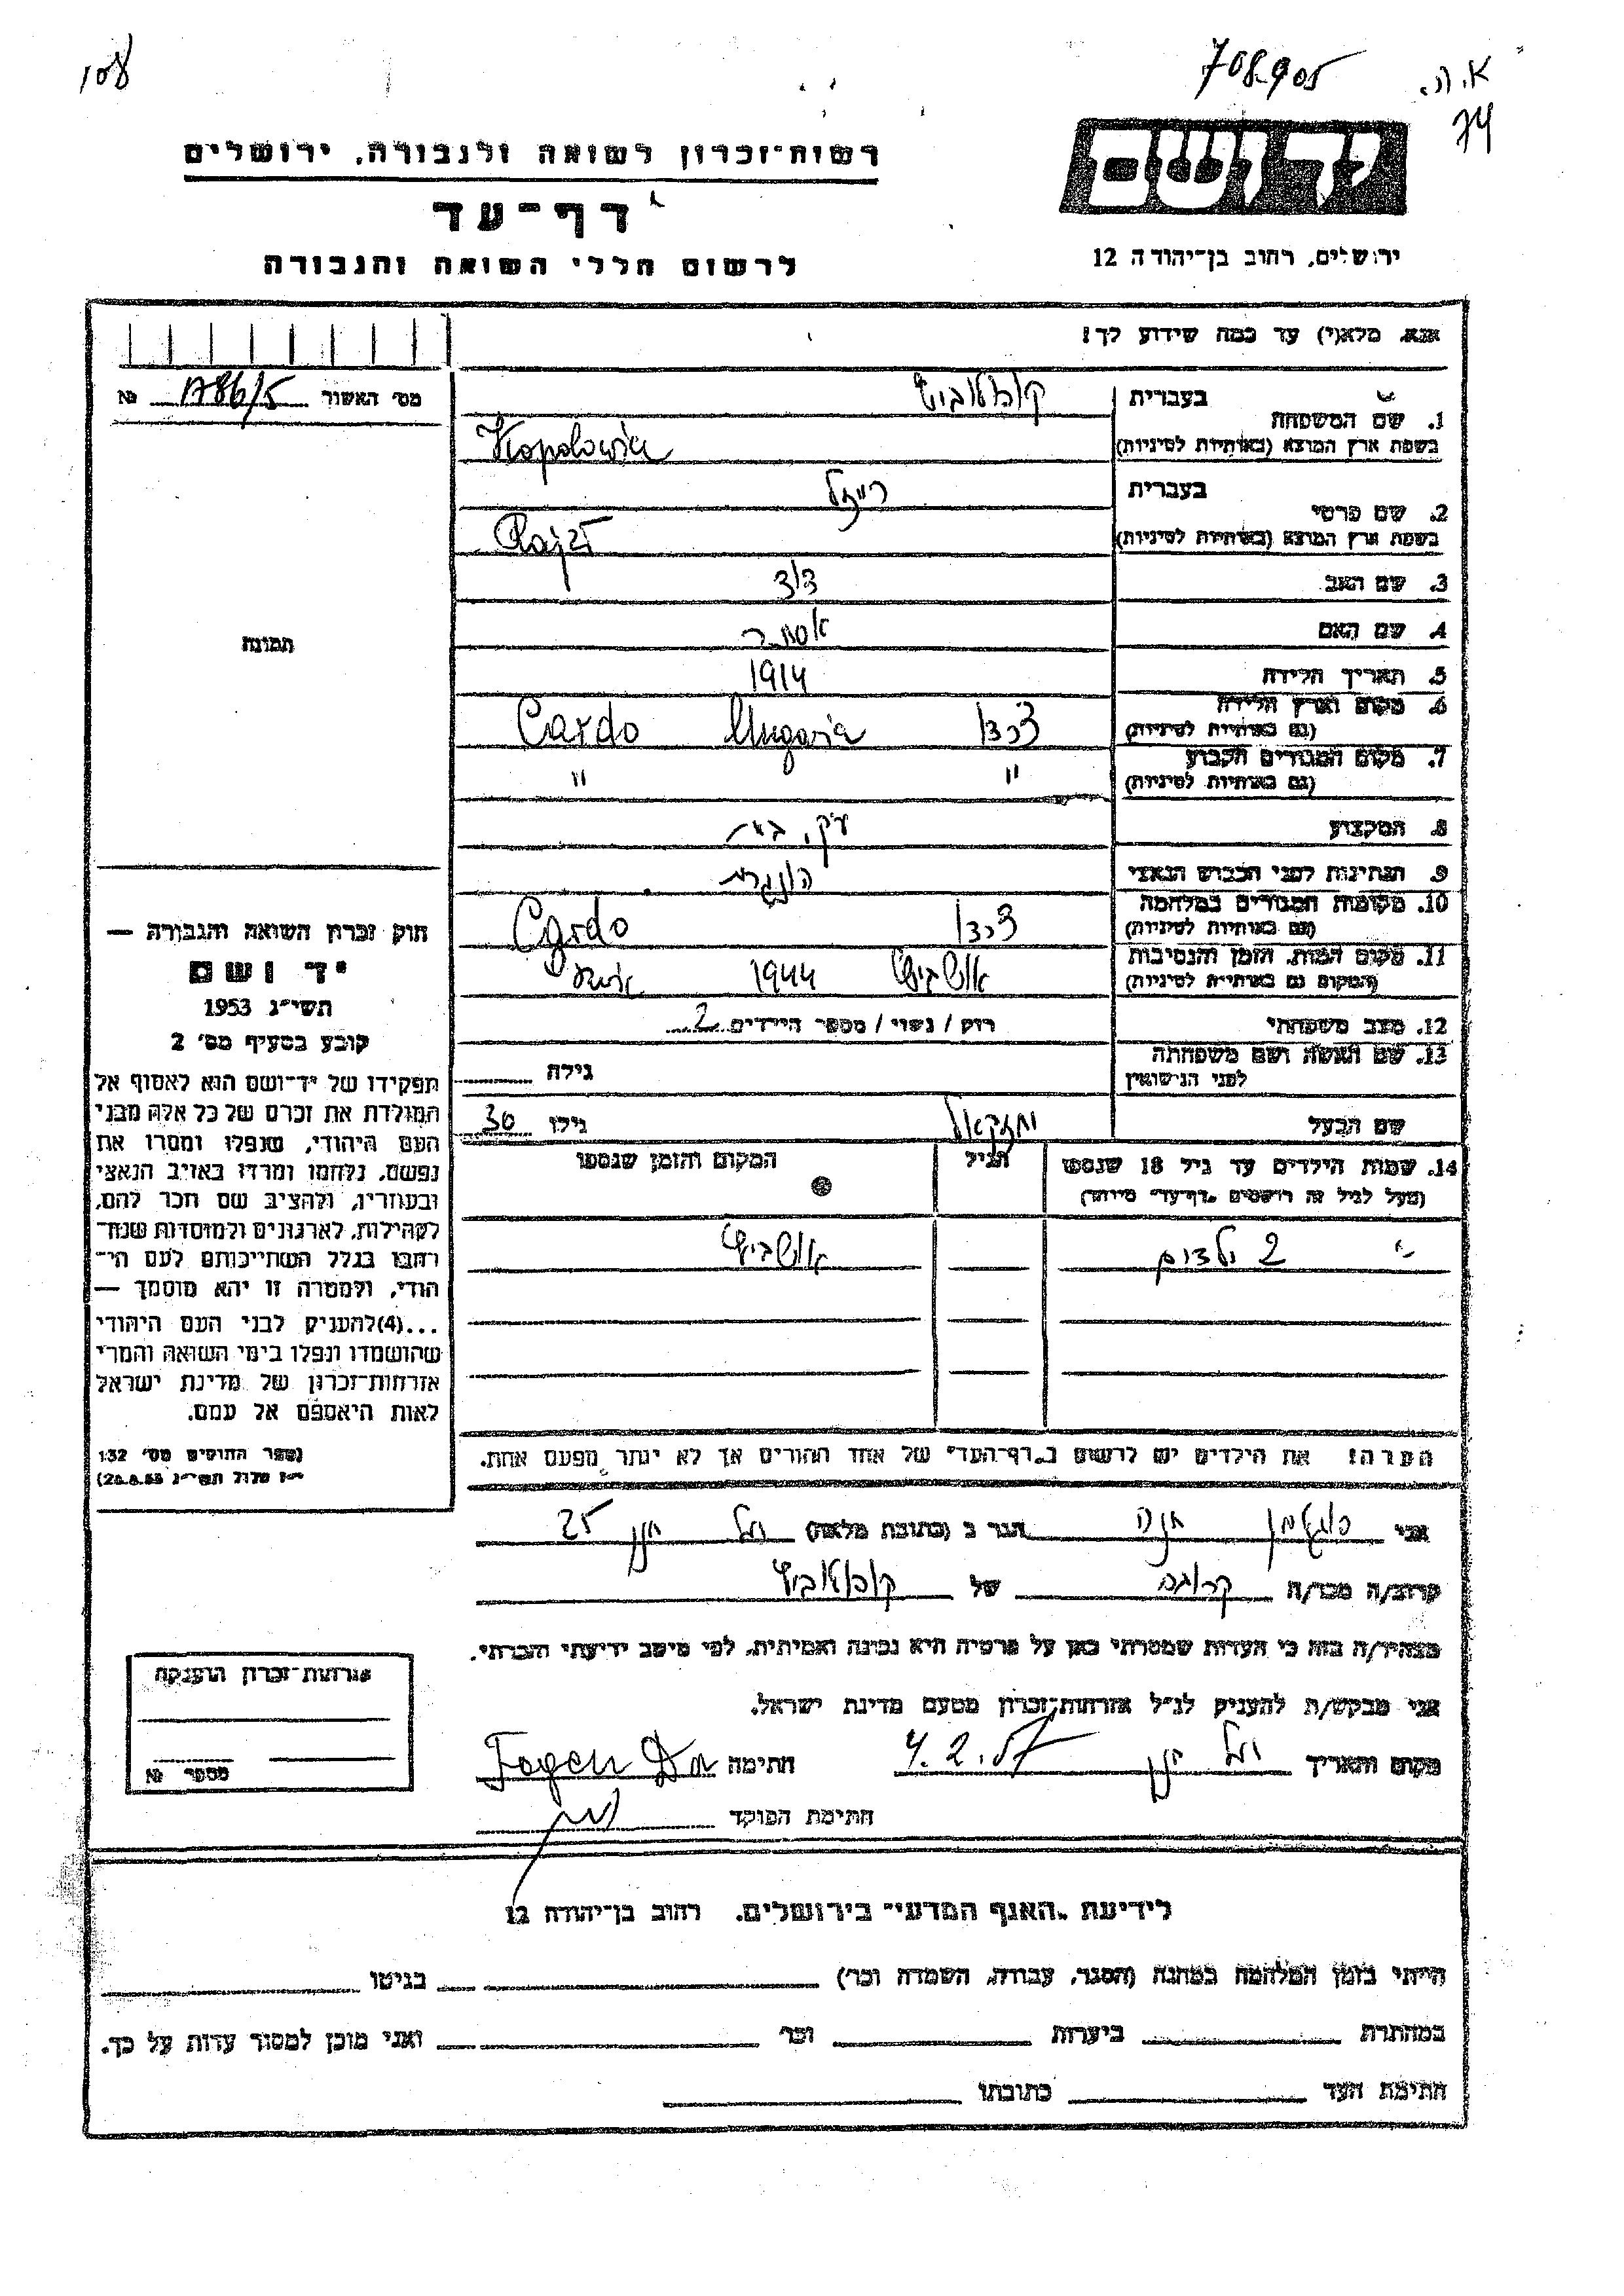 708905
א.ה.
74
רשות-זכרון לשואה ולגבורה, ירושלים
דף-עד
לרשום חללי השואה והגבורה
יד ושם
ירושלים, רחוב בן-יהודה 12
אנא, מלא(י) עד כמה שידוע לך!
מס׳ האשור 1786/5 №
תמונה
1. שם המשפחה
בעברית
(בשפת ארץ המוצא (באותיות לטיניות
Kopolowicz
2. שם פרטי
בעברית רייזל
(בשפת ארץ המוצא (באותיות לטיניות
Rajzl
3. שם האב
4. שם האם אסתר
5. תאריך הלידה 1914
6. מקום וארץ הלידה
(גם באותיות לטיניות)
Ungaria Cardo
7. מקום המגורים הקבוע
(גם באותיות לטיניות)
" "
8. המקצוע עק. בית
9. הנתינות לפני הכבוש הנאצי הונגרית
10. מקומות המגורים במלחמה
(גם באותיות לטיניות)
Cardo
11. מקום המות, הזמן והנסיבות
(המקום גם באותיות לטיניות)
אושביץ 1944
12. מצב משפחתי רוק / נשוי / מספר הילדים 2
13. שם האשה ושם משפחתה
לפני הנישואין
גילה
שם הבעל יחזקאל גילו 30
14. שמות הילדים עד גיל 18 שנספו
(מעל לגיל זה רושמים „דף-עד” מיוחד)
הגיל
המקום והזמן שנספו
2 ילדים אושביץ
הערה! את הילדים יש לרשום ב„דף-העד” של אחד ההורים אך לא יותר מפעם אחת.
חוק זכרון השואה והגבורה —
יד ושם
תשי״ג 1953
קובע בסעיף מס׳ 2
תפקידו של יד-ושם הוא לאסוף אל
המולדת את זכרם של כל אלה מבני
העם היהודי, שנפלו ומסרו את
נפשם, נלחמו ומרדו באויב הנאצי
ובעוזריו, ולהציב שם וזכר להם,
לקהילות, לארגונים ולמוסדות שנח-
רבו בגלל השתייכותם לעם הי-
הודי, ולמטרה זו יהא מוסמך —
...(4)להעניק לבני העם היהודי
שהושמדו ונפלו בימי השואה והמרי
אזרחות-זכרון של מדינת ישראל
לאות היאספם אל עמם.
(ספר החוקים מס׳ 132
י״ז אלול תשי״ג 28.8.53)
אני חנה הגר ב (כתובת מלאה) 25
קרוב/ה מכר/ה קרובה של
מצהיר/ה בזה כי העדות שמסרתי כאן על פרטיה היא נכונה ואמיתית, לפי מיטב ידיעתי והכרתי.
אני מבקש/ת להעניק לנ״ל אזרחות-זכרון מטעם מדינת ישראל.
מקום ותאריך 4.2.57 חתימה
חתימת הפוקד
אזרחות-זכרון הוענקה
מספר №
לידיעת „האגף המדעי” בירושלים, רחוב בן-יהודה 12
הייתי בזמן המלחמה במחנה (הסגר, עבודה, השמדה וכר׳) בגיטו
במחתרת ביערות וכר׳ ואני מוכן למסור עדות על כך.
חתימת העד כתובתו